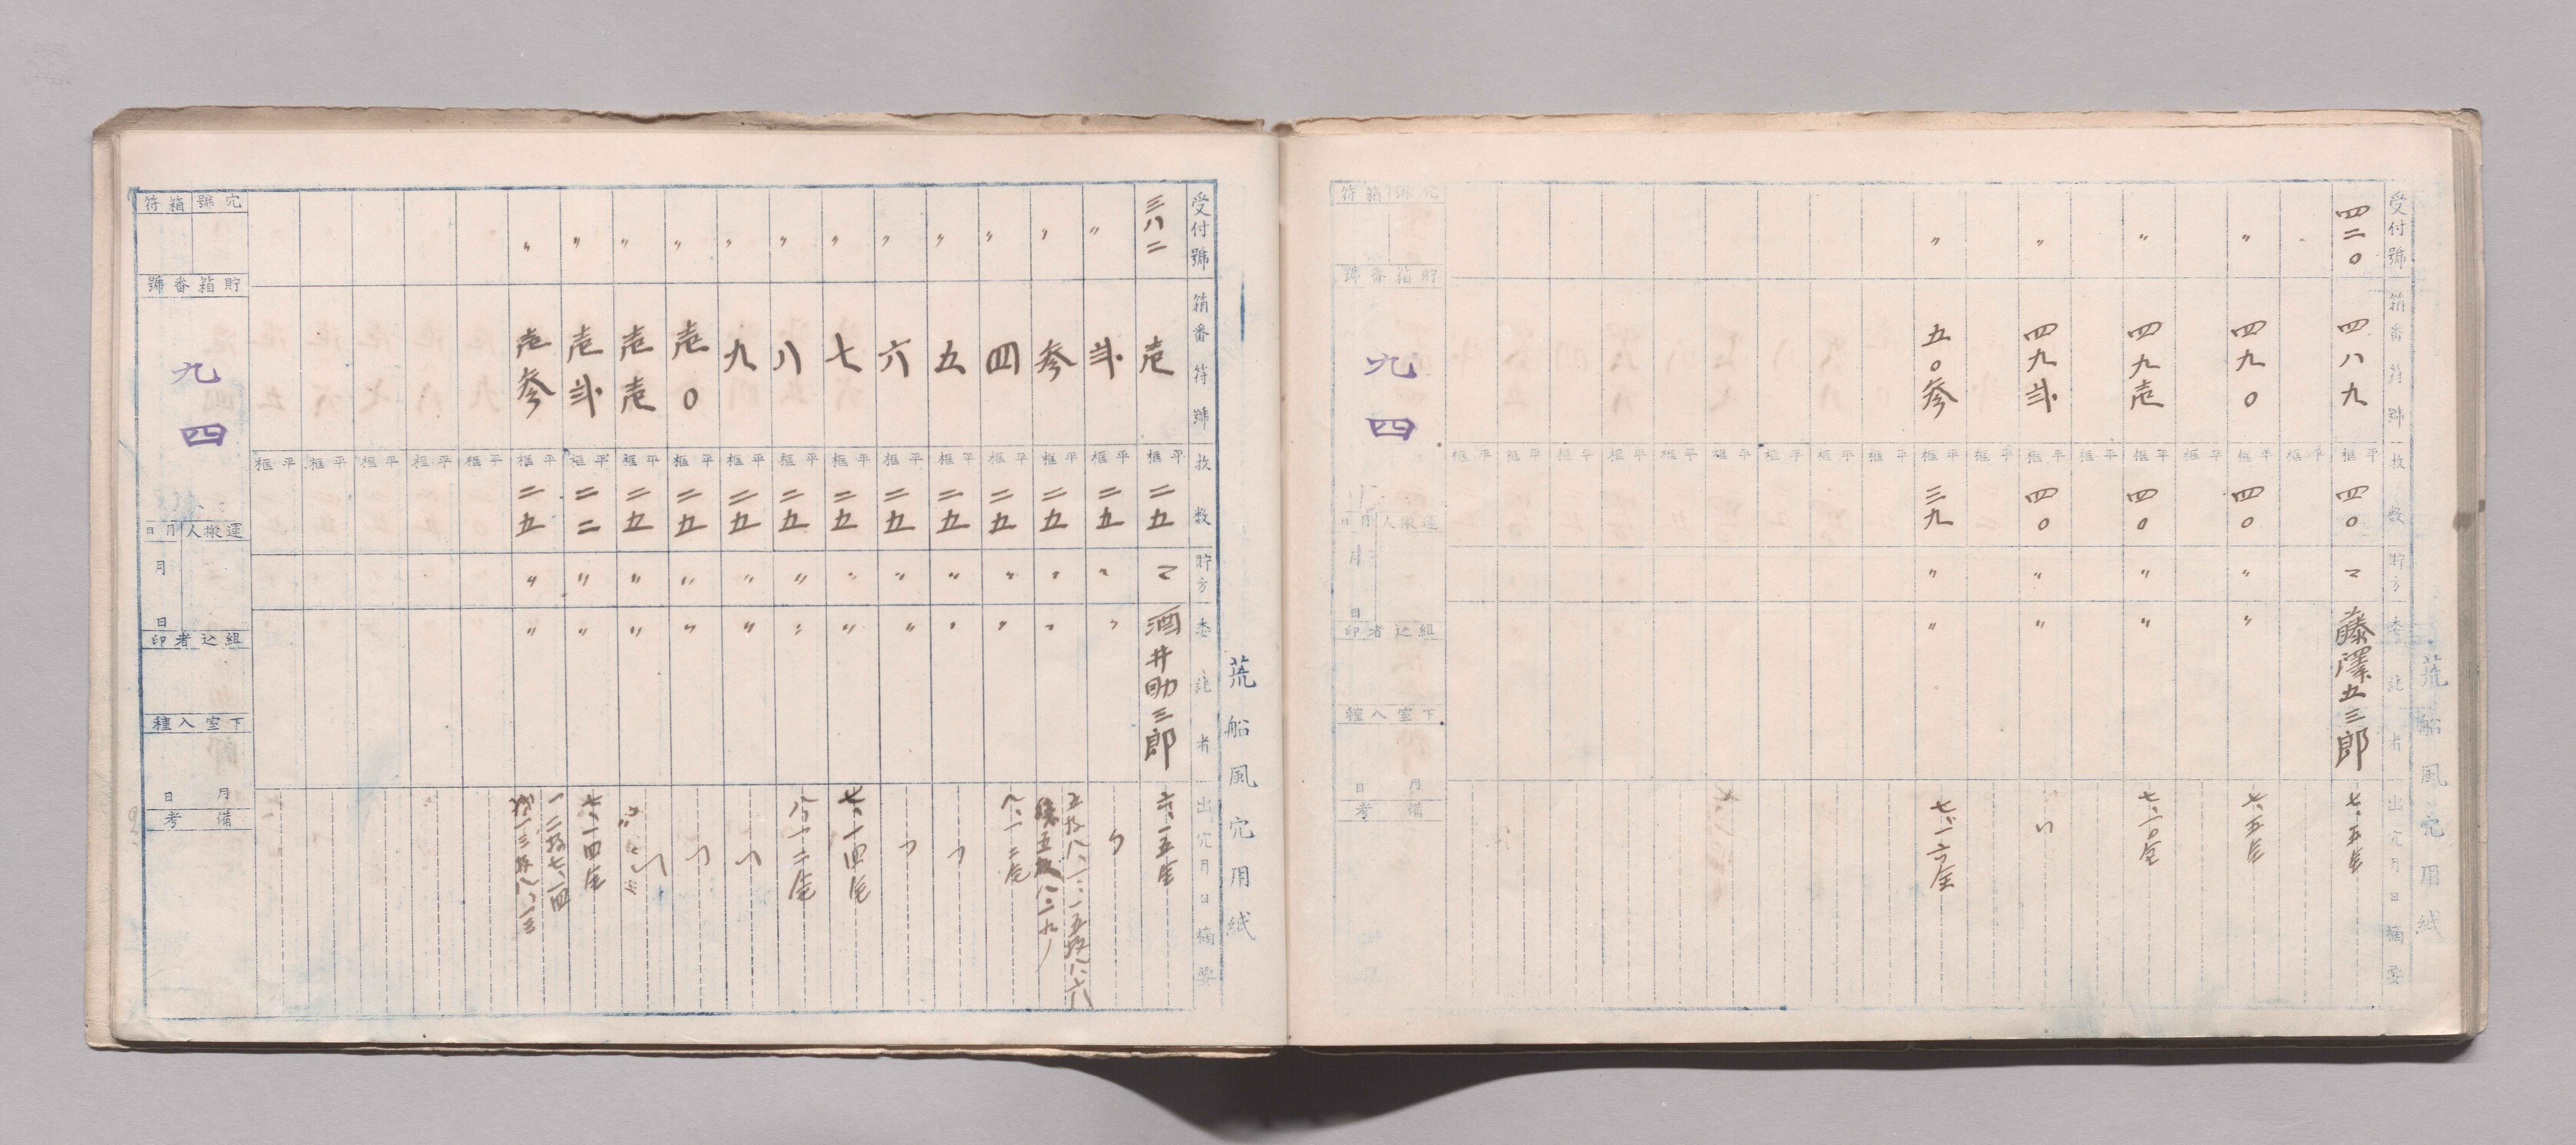 荒船風穴用紙
受付號 箱番符號 枚數 貯方 委託者 出穴月日摘要
四二〇 四八九 平框 四〇 マ 藤澤五三郎 七、五全
〃 四九〇 平框 四〇 〃 〃 七、五全
〃 四九壱 平框 四〇 〃 〃 七、一〇全
〃 四九弐 平框 四〇 〃 〃 〃
〃 五〇参 平框 三九 〃 〃 七、一六全
穴號 箱符
貯箱番號
九四
運搬人 月日
月 日
組込者印
下室入種
月 日
備考
荒船風穴用紙
受付號 箱番符號 枚數 貯方 委託者 出穴月日摘要
三八二 壱 平框 二五 マ 酒井助三郎 六、一五全
〃 弐 平框 二五 〃 〃 〃
〃 参 平框 二五 〃 〃
〃 四 平框 二五 〃 〃 八、一二全
〃 五 平框 二五 〃 〃 〃
〃 六 平框 二五 〃 〃 〃
〃 七 平框 二五 〃 〃 七、一四全
〃 八 平框 二五 〃 〃 八、一二全
〃 九 平框 二五 〃 〃 〃
〃 壱〇 平框 二五 〃 〃 〃
〃 壱壱 平框 二五 〃 〃 〃
〃 壱弐 平框 二二 〃 〃 七、一四全
〃 壱参 平框 二五 〃 〃 一二枚七、一四
穴號 箱符
貯箱番號
九四
運搬人 月日
月 日
組込者印
下室入種
月 日
備考